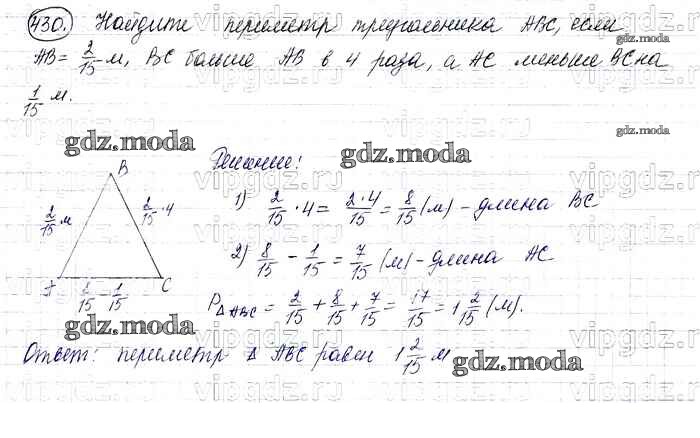 430. Найдите периметр треугольника ABC, если
AB = 2/15 м, BC больше AB в 4 раза, а AC меньше BC на
1/15 м.
gdz.moda
gdz.moda
gdz.moda
gdz.moda
Решение:
B
2/15 м
2/15 · 4
A
C
1) 2/15 · 4 = 2·4/15 = 8/15 (м) – длина BC
2) 8/15 – 1/15 = 7/15 (м) – длина AC
P△ABC = 2/15 + 8/15 + 7/15 = 17/15 = 1 2/15 (м).
gdz.moda
Ответ: периметр △ ABC равен 1 2/15 м
gdz.moda
vipgdz.ru